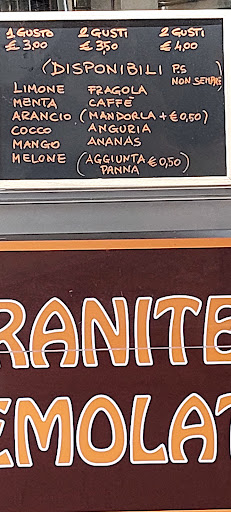 1 GUSTO 2 GUSTI 2 GUSTI
€ 3,00 € 3,50 € 4,00
(DISPONIBILI P.S
NON SEMPRE)
LIMONE FRAGOLA
MENTA CAFFÈ
ARANCIO (MANDORLA + € 0,50)
COCCO ANGURIA
MANGO ANANAS
MELONE (AGGIUNTA € 0,50)
PANNA
RANITE
EMOLAT